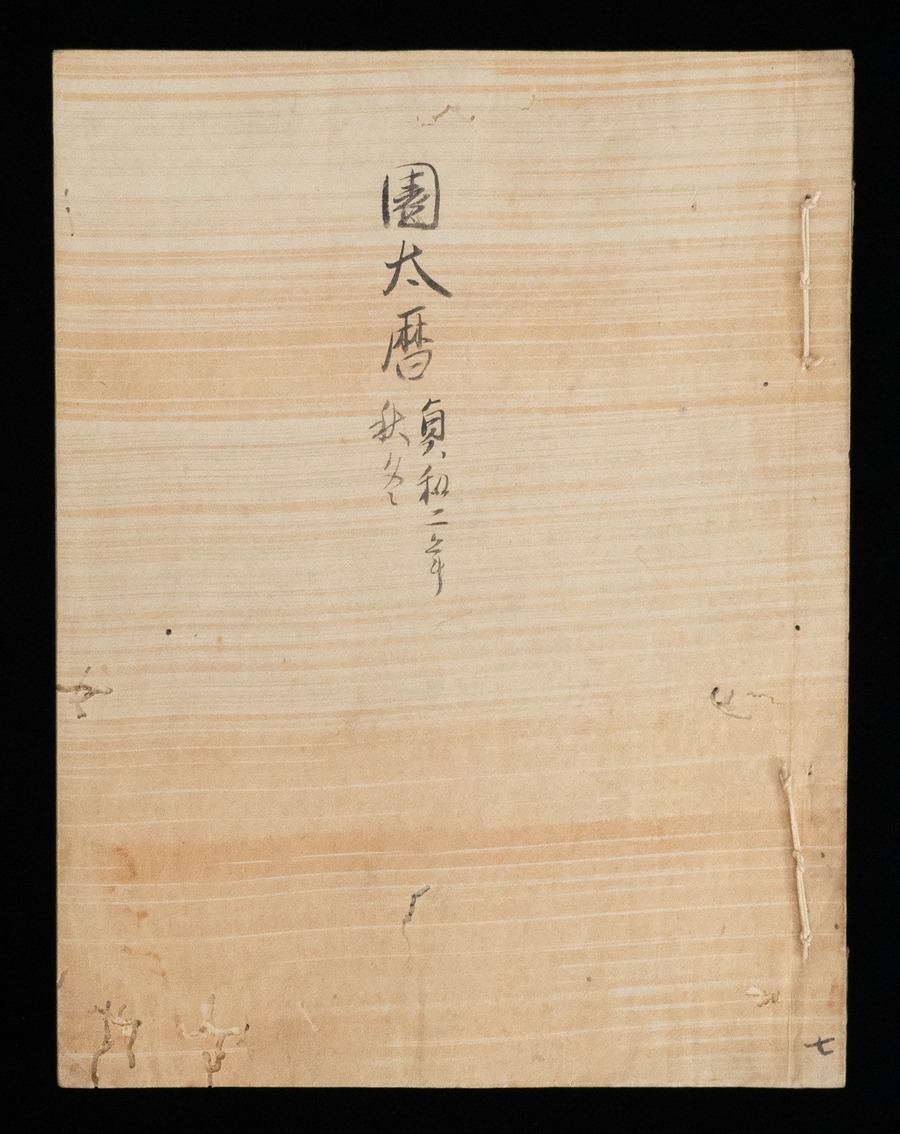 園太暦
貞和二年
秋冬
七